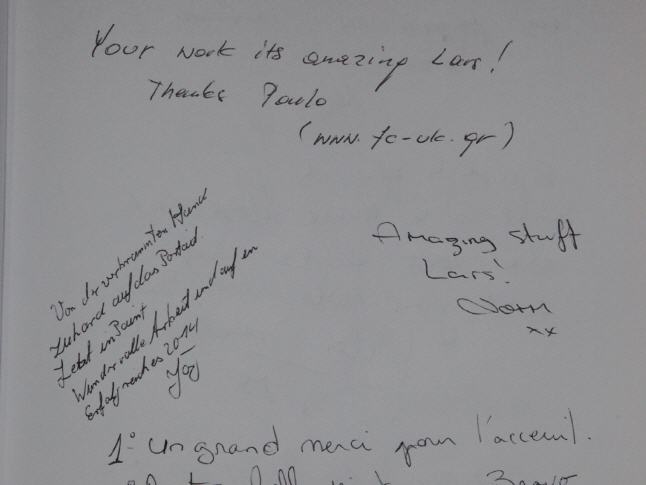 Your work its amazing Lars!
Thanks Paulo
(www.fc-uk.gr)
Amazing stuff
Lars!
xx
Von der verbrannten
auf das
Jetzt in Paint
Wundervolle Arbeit und auf ein
Erfolgreiches 2014
1° Un grand merci pour l'acceuil.
Bravo